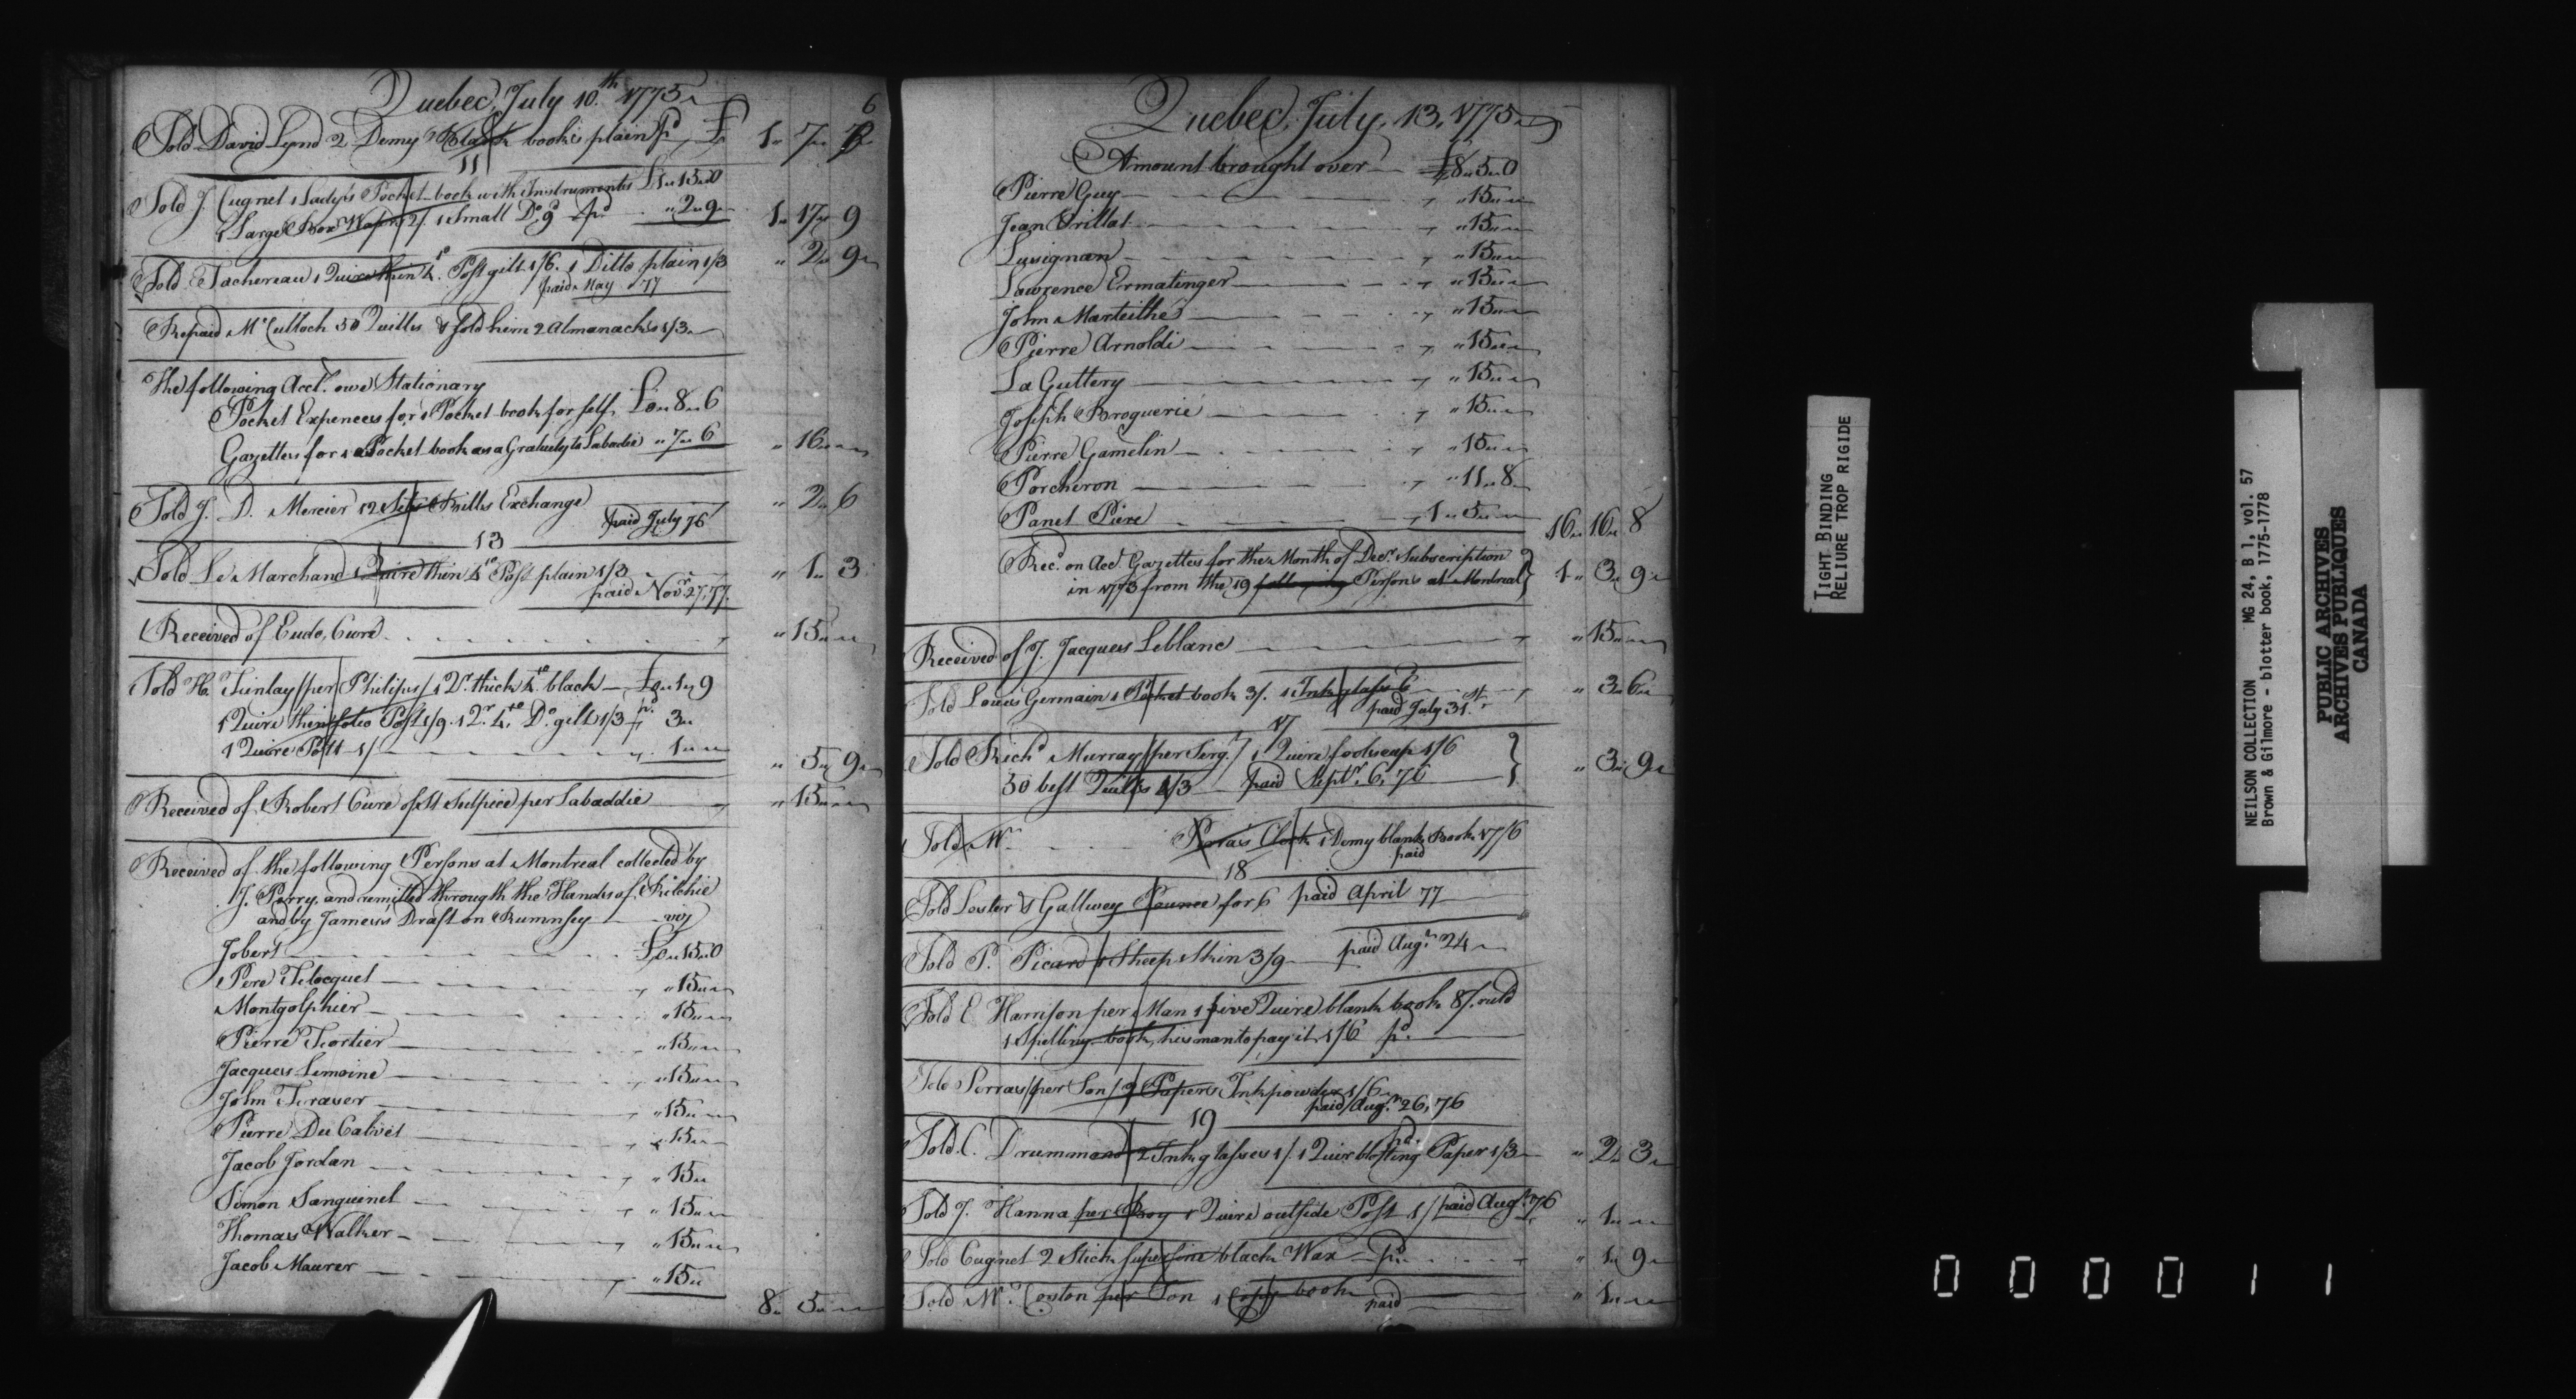 Quebec, July 10.th 1775
6
Sold David Lynd 2 Demy blank books plain pd £ 1 " 7 "
11
Sold J. Cugnet 1 Lady's Pocket-book with Instruments £1 " 15 " 0
1 Large Box Wafers 2/. 1 Small Do. 9d pd " 2 " 9 1 " 17 " 9
Sold Tachereau 1 Quire thin 4.to Post gilt 1/6. 1 Ditto plain 1/3 " 2 " 9
paid May 77
Repaid McCulloch 50 Quills & sold him 2 Almanacks 1/3
The following Acct. owe Stationary
Pocket Expences for 1 Pocket-book for self £0 " 8 " 6
Gazettes for 1 Pocket-book as a Gratuity to Labadie " 7 " 6 " 16 "
Sold J. D. Mercier 12 Sets Bills Exchange " 2 " 6
paid July 76
13
Sold Le Marchand 1 Quire thin 4to Post plain 1/3 " 1 " 3
paid Novr. 27, 77.
Received of Eudo, Curé " 15 "
Sold H. Finlay (per Philips) 1 Qr. thick 4.to black £0 " 1 " 9
1 Quire thin folio Post 1/9. 1 Qr. 4.to Do. gilt 1/3 pd. 3 "
1 Quire Pott 1/ 1 "
" 5 " 9
Received of Robert Cure of St Sulpice per Labaddie " 15 "
Received of the following Persons at Montreal collected by
J. Perry, and remitted through the Hands of Ritchie
and by James's Draft on Rumnsey viz
Jobert £0 " 15 " 0
Pere Flocquet " 15 "
Montgolphier " 15 "
Pierre Fortier " 15 "
Jacques Lemoine " 15 "
John Fraser " 15 "
Pierre Du Calvet " 15 "
Jacob Jordan " 15 "
Simon Sanguinet " 15 "
Thomas Walker " 15 "
Jacob Maurer " 15 "
8 " 5 "
Quebec, July, 13, 1775
Amount brought over £8 " 5 " 0
Pierre Guy " 15 "
Jean Orillat " 15 "
Lusignan " 15 "
Lawrence Ermatinger " 15 "
John Marteilhe " 15 "
Pierre Arnoldi " 15 "
La Guttery " 15 "
Joseph Broguerie " 15 "
Pierre Gamelin " 15 "
Porcheron " 11 " 8
Panet Piere 1 " 5 " 16 " 16 " 8
Recd. on Acct. Gazettes for the Month of Decr. Subscription
in 1773 from the 19 following Persons at Montreal } 1 " 3 " 9
Received of J. Jacques Leblanc " 15 "
Sold Louis Germain 1 Pocket book 3/. 1 Ink glass 6 " 3 " 6
paid July 31.st
17
Sold Richd Murray (per Serg.t) 1 Quire foolscap 1/6
50 best Quills 2/3 paid Septr. 6, 76 } " 3 " 9
Sold Mr. Perras Clerk 1 Demy blank Book 17/6
paid
18
Sold Lester & Gallwey Pounce for 6 paid April 77
Sold P. Picard 1 Sheep Skin 3/9 paid Augt. 24
Sold E. Harrison per Man 1 five Quire blank book 8/. ruld
1 Spelling-book, his man to pay it 1/6 pd.
Sold Perras (per Son) 2 Papers Inkpowder 1/6
paid Augt. 26, 76
19
Sold C. Drummond 2 Ink glasses 1/. 1 Quire blotting Paper 1/3 pd. " 2 " 3
Sold J. Hanna per Boy 1 Quire outside Post 1/ paid Augt. 76 " 1 "
Sold Cugnet 2 Stick superfine black Wax pd. " 1 " 9
Sold Mr. Coston per Son 1 Copy book paid " 1 "
TIGHT BINDING
RELIURE TROP RIGIDE
NEILSON COLLECTION MG 24, B 1, vol. 57
Brown & Gilmore - blotter book, 1775-1778
PUBLIC ARCHIVES
ARCHIVES PUBLIQUES
CANADA
000011